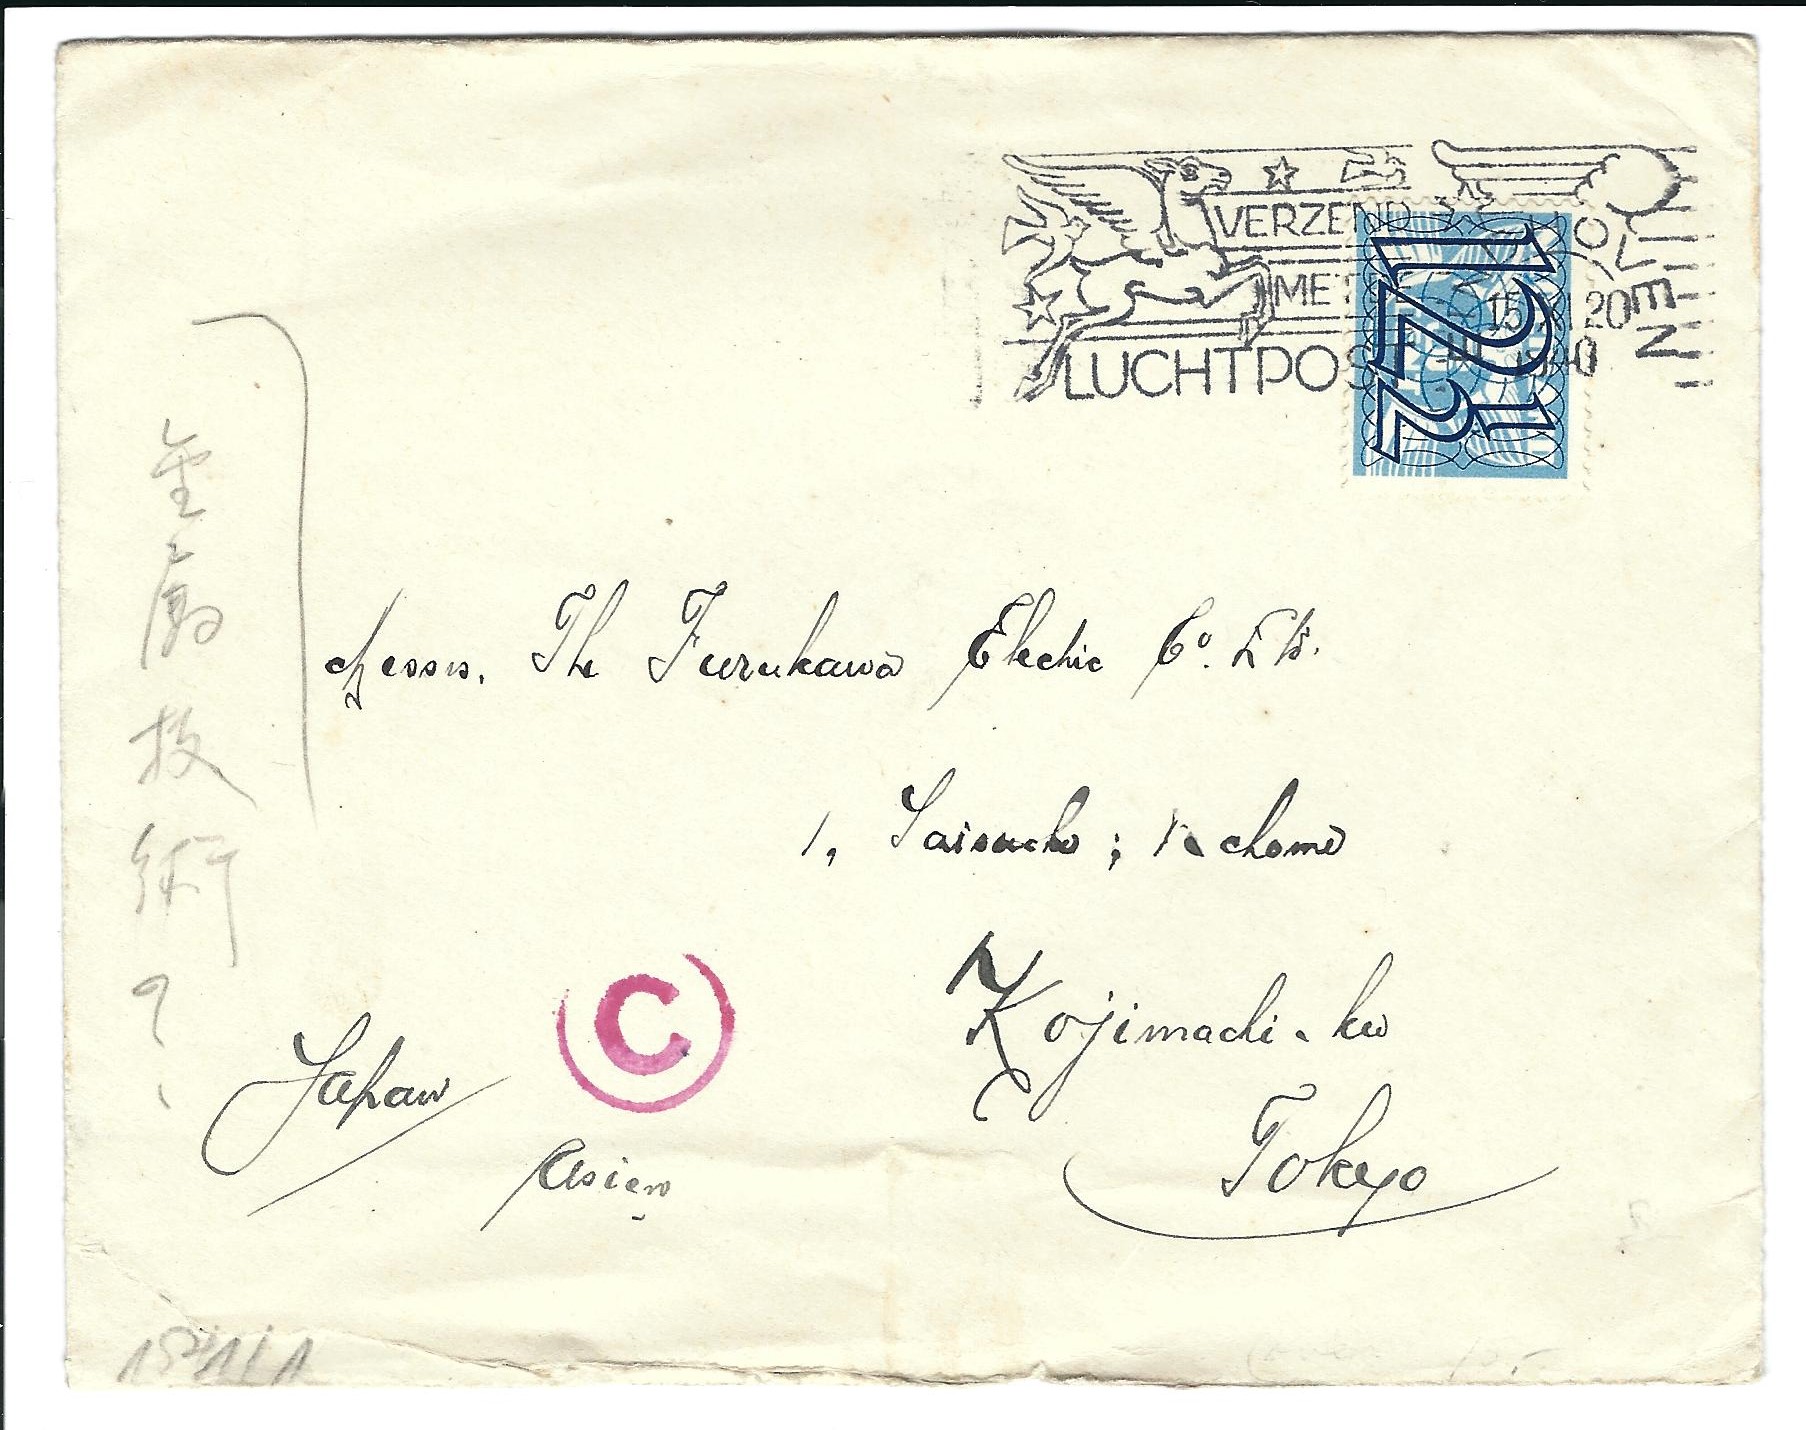 VERZEND
MET
LUCHTPOS
15 XI 20
1940
12½
Messrs. The Furukawa Electric Co. Ltd.
1, Saiwacho; 1 chome
Kojimachi-ku
Tokyo
Japan
Asien
C
金属技術